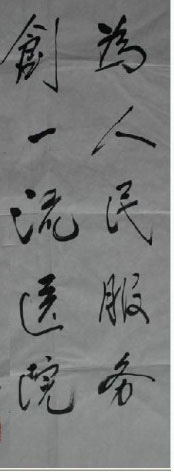 為人民服务
創一流医院